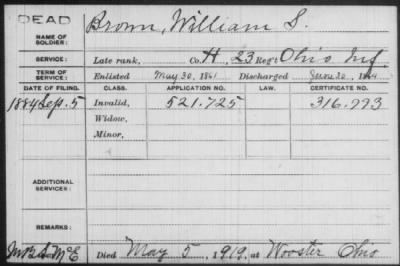 DEAD
NAME OF SOLDIER: Brown, William S.
SERVICE: Late rank, Co. H, 23 Reg't Ohio Inf
TERM OF SERVICE: Enlisted May 30, 1861 Discharged June 20, 1864
DATE OF FILING. CLASS. APPLICATION NO. LAW. CERTIFICATE NO.
1884 Sep. 5 Invalid, 521.725 316.773
Widow,
Minor,
ADDITIONAL SERVICES:
REMARKS:
Died May 5, 1919, at Wooster Ohio